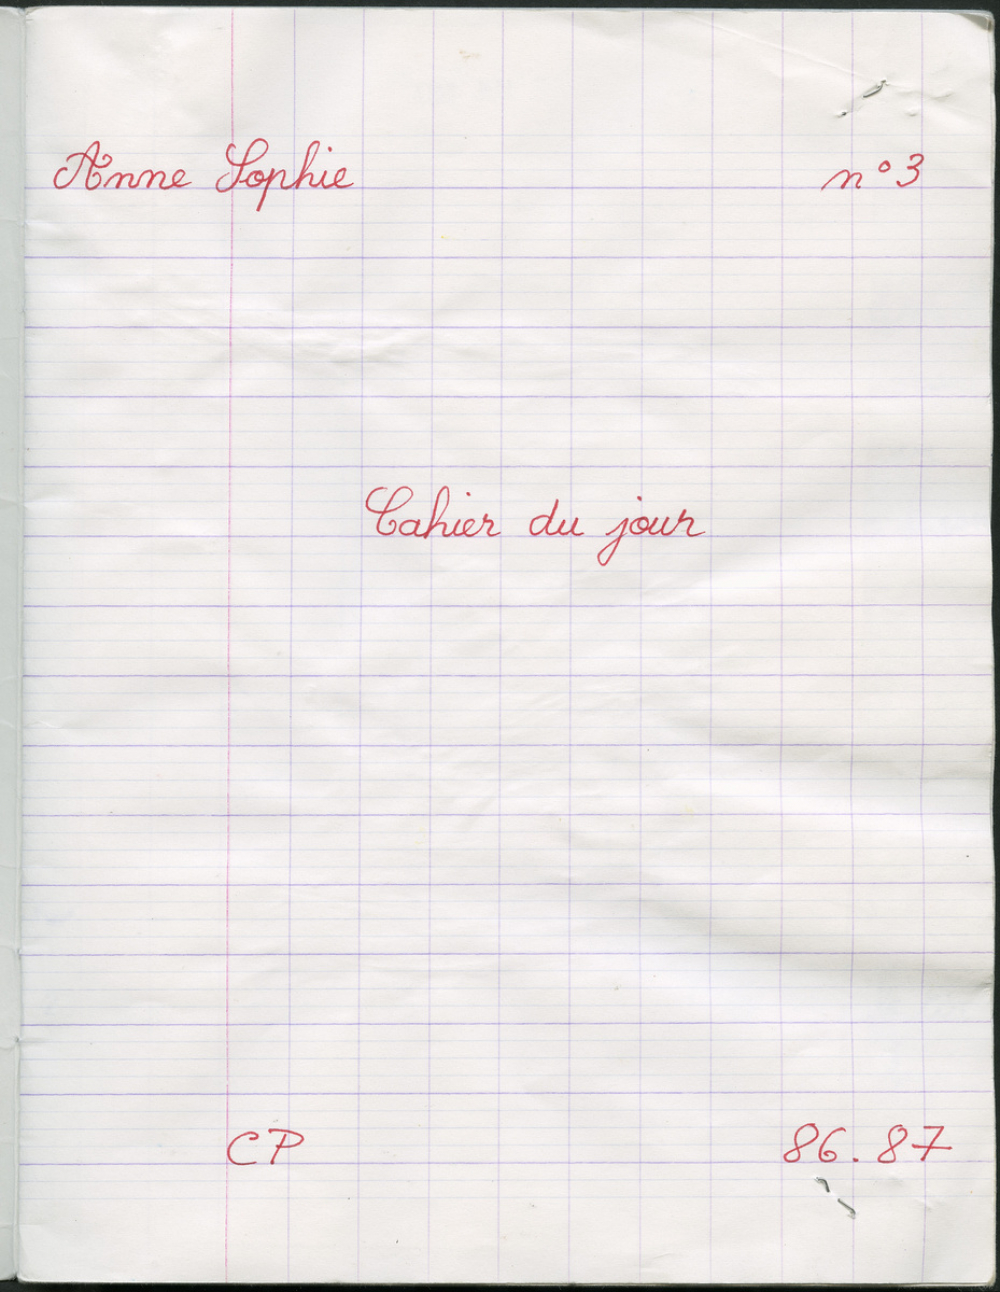 Anne Sophie n°3
Cahier du jour
CP 86.87